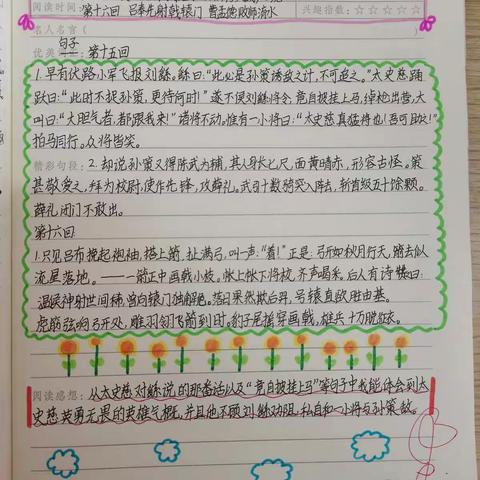 阅读时间： 第十六回 吕奉先射戟辕门 曹孟德败师淯水 兴趣指数：☆☆☆☆☆
名人名言（
优美句子：第十五回
1.早有伏路小军飞报刘繇，繇曰：“此必是孙策诱敌之计，不可追之。”太史慈踊
跃曰：“此时不捉孙策，更待何时！”遂不候刘繇将令，竟自披挂上马，绰枪出营，大
叫曰：“大胆气者，都跟我来！”诸将不动。惟有一小将曰：“太史慈真猛将也！吾可助之！”
拍马同行。众将皆笑。
精彩句段：2.却说孙策又得陈武为辅，其人身长七尺，面黄睛赤，形容古怪。策
甚敬爱之，拜为校尉，使作先锋，攻薛礼。武引十数骑突入阵去，斩首级五十馀颗。
薛礼闭门不敢出。
第十六回
1.只见吕布挽起袍袖，搭上箭，扯满弓，叫一声：“着！”正是：弓开如秋月行天，箭去似
流星落地。——一箭正中画戟小枝。帐上帐下将校，齐声喝采。后人有诗赞曰：
温侯神射世间稀，曾向辕门独解危。落日果然欺后羿，号猿直欲胜由基。
虎筋弦响弓开处，雕羽翎飞箭到时。豹子尾摇穿画戟，雄兵十万脱征衣。
阅读感想：从太史慈对繇说的那番话以及“竟自披挂上马”等句子中我能体会到太
史慈英勇无畏的英雄气概，并且他不顾刘繇劝阻，私自和一小将与孙策敌。